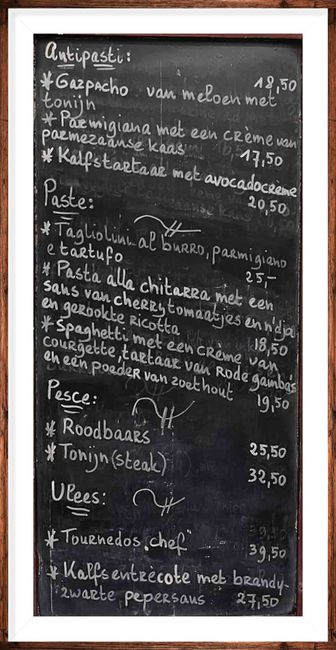 Antipasti:
18,50
* Gazpacho van meloen met
tonijn
* Parmigiana met een crème van
parmezaanse kaas 17,50
* Kalfstartaar met avocadocreme
20,50
Paste:
* Tagliolini al burro, parmigiano
e tartufo 25,-
* Pasta alla chitarra met een
saus van cherrytomaatjes en n'dja
en gerookte ricotta 18,50
* Spaghetti met een crème van
courgette, tartaar van rode gambas
en een poeder van zoethout 19,50
Pesce:
* Roodbaars 25,50
* Tonijn (steak) 32,50
Vlees:
* Tournedos „chef” 39,50
* Kalfsentrecote met brandy-
zwarte pepersaus 27,50